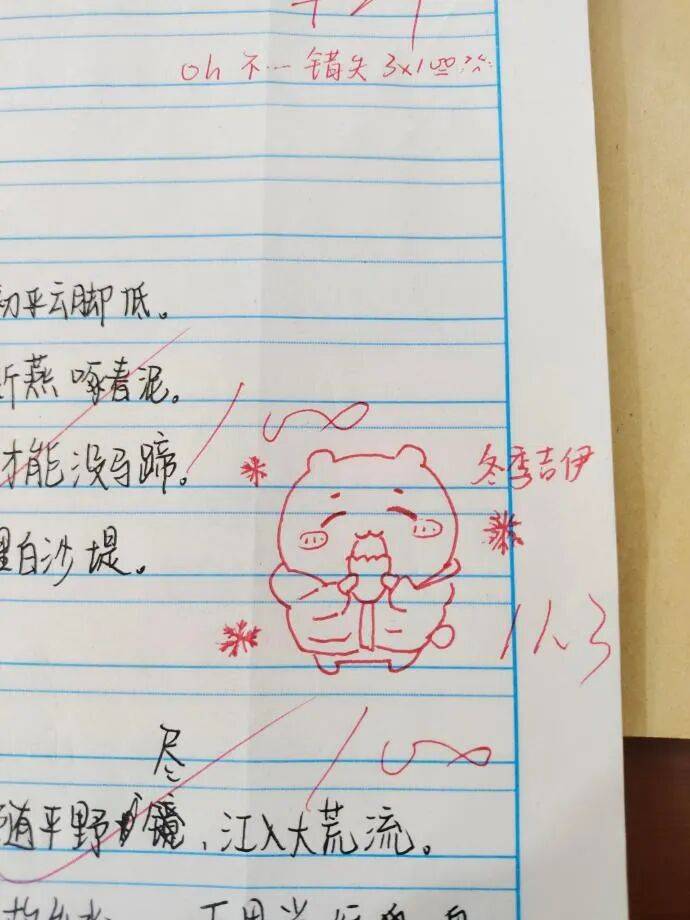 oh 不… 错失 3×100
初平云脚低。
新燕啄春泥。
才能没马蹄。
100
冬季吉伊
里白沙堤。
11.3
100
尽
随平野
、江入大荒流。